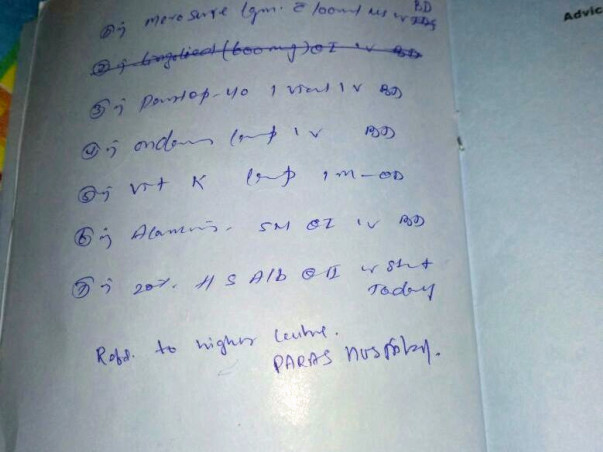 Advic
BD
① inj Merosure 1gm. c 100ml NS IV TDS
② inj Linezolid (600mg) OI IV BD
③ inj Pantop-40 1 vial IV BD
④ inj ondem 1amp IV BD
⑤ inj Vit K 1amp IM-OD
⑥ inj SN OI IV BD
⑦ inj 20%. H S Alb OII IV Stat
Today
Refd. to higher centre.
PARAS HOSPITAL.